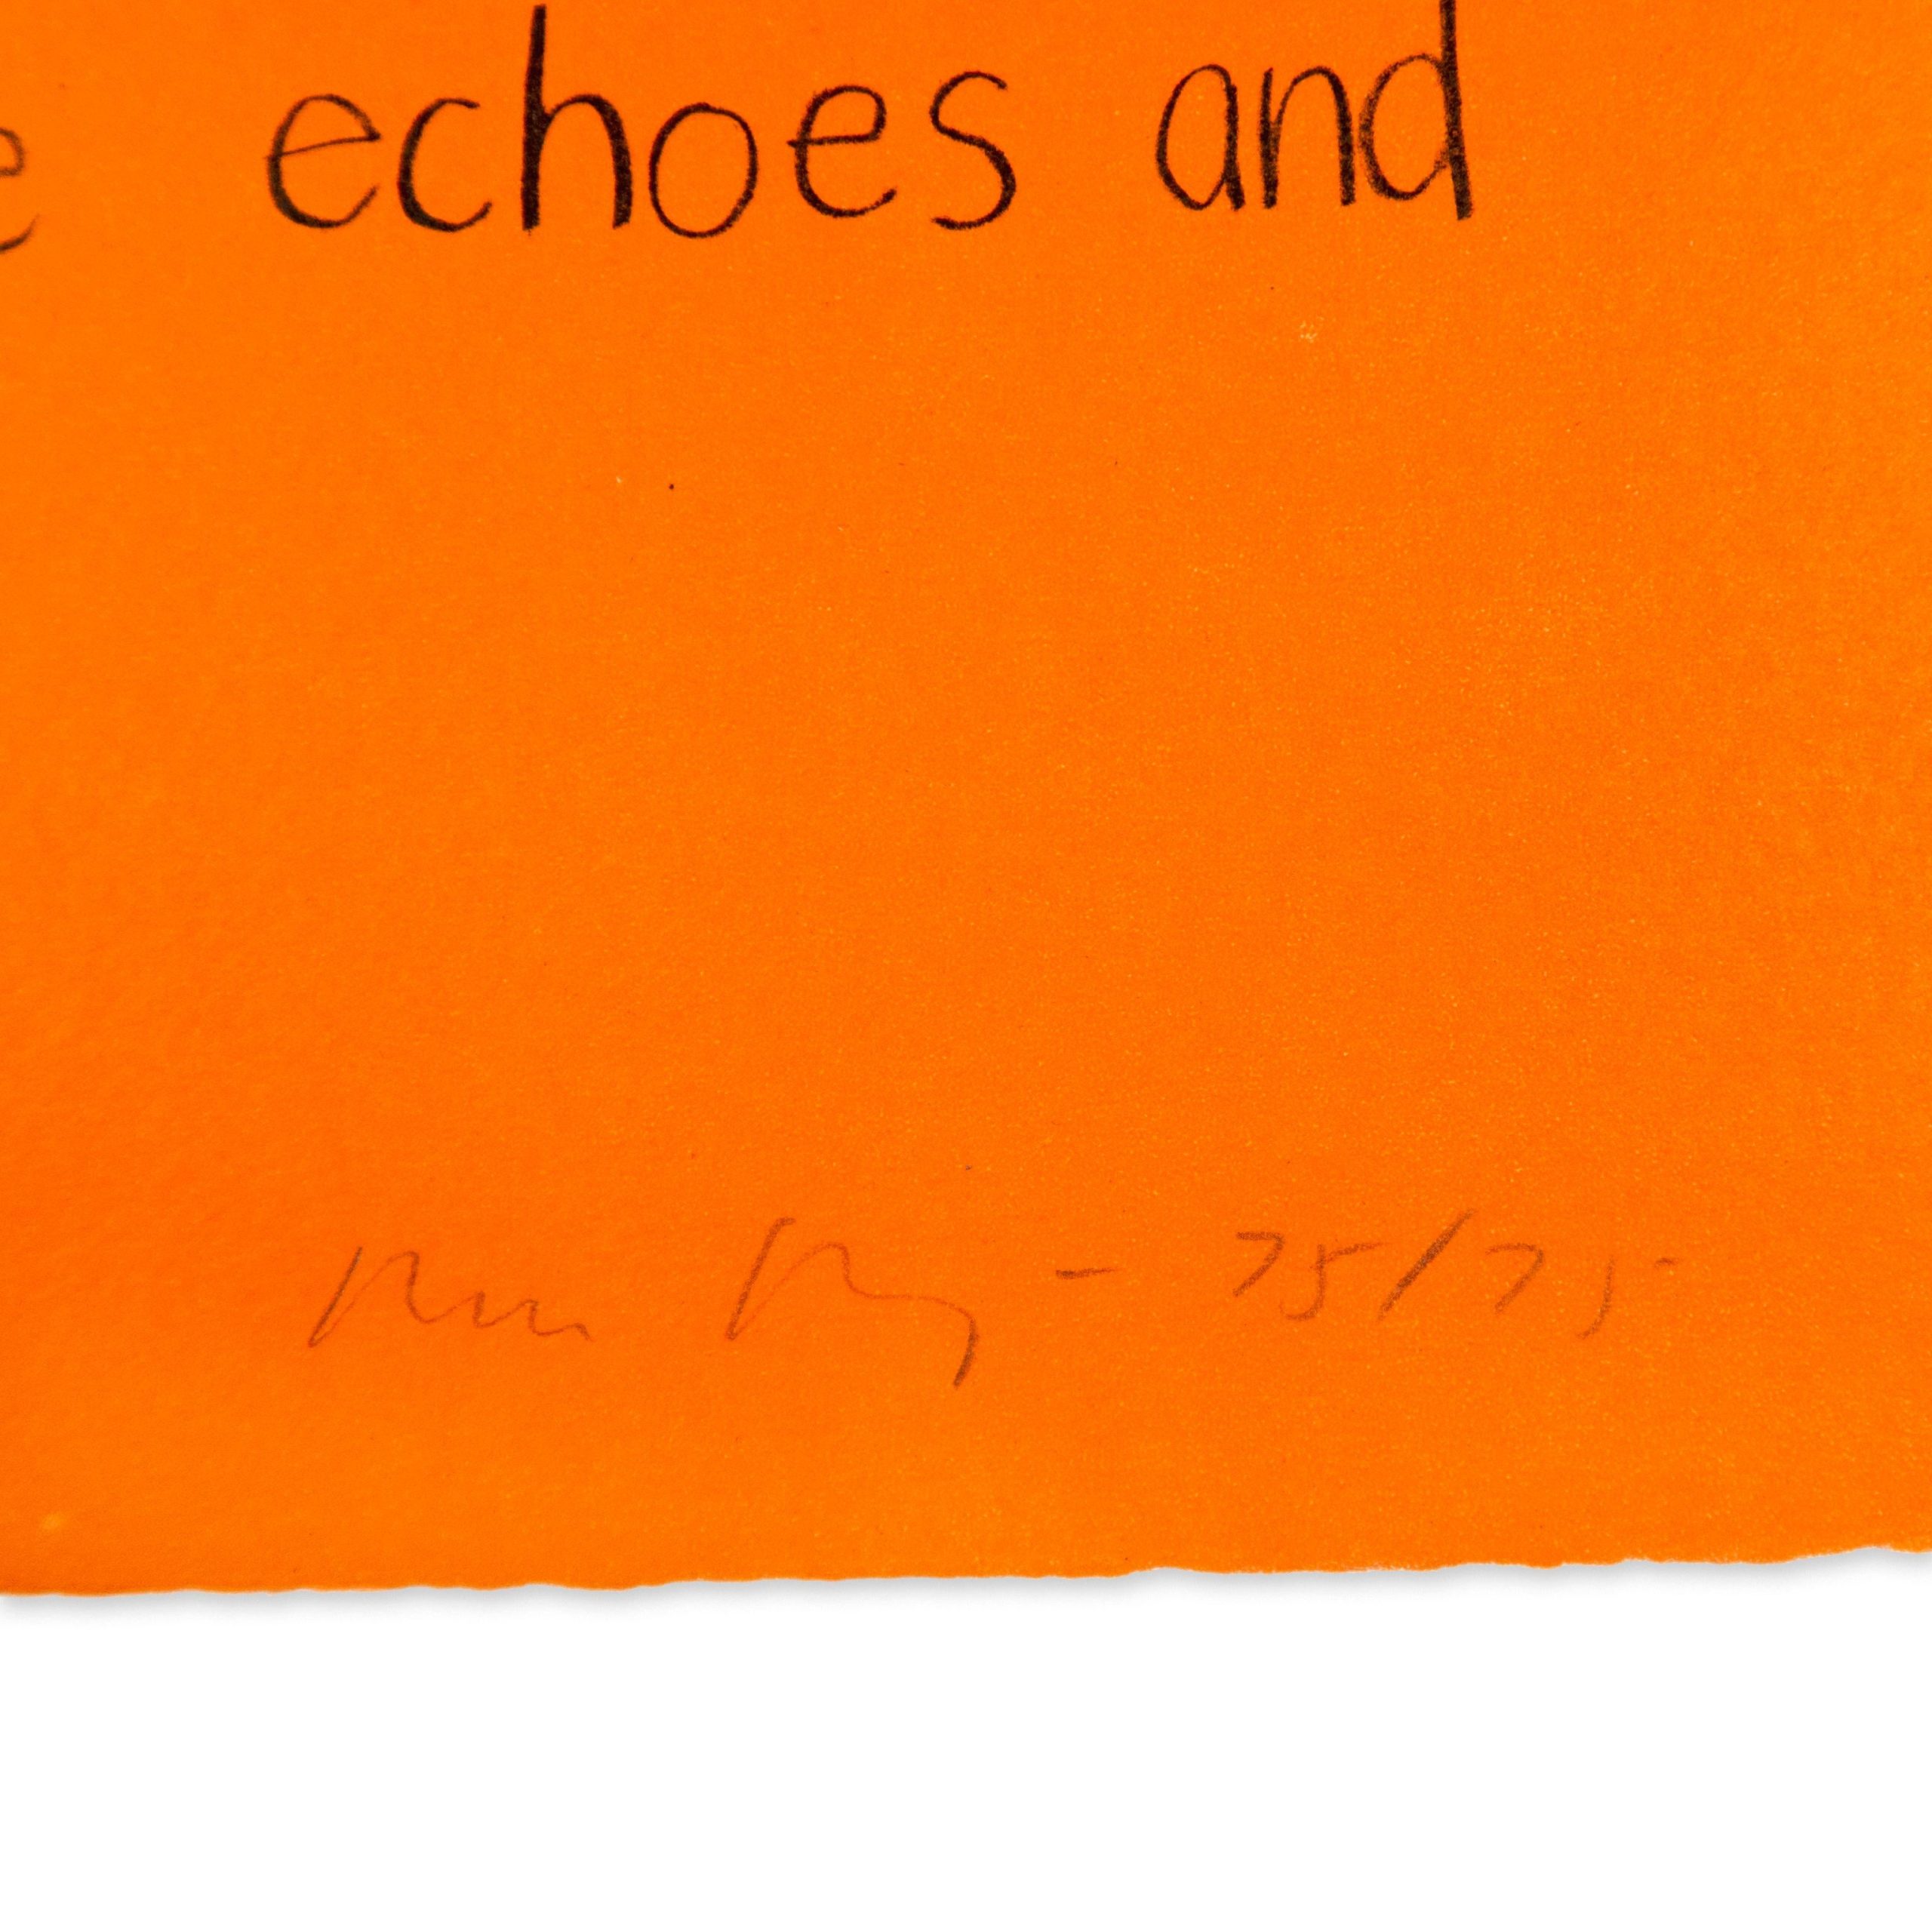 e echoes and
– 75/75